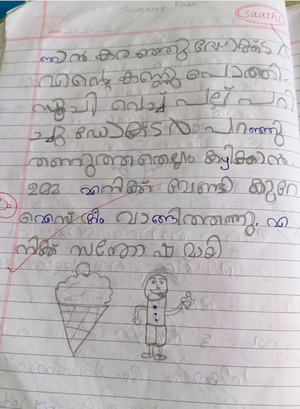 Saathi
ഞാൻ കരഞ്ഞു ഡോക്ടർ
എന്റെ കണ്ണു പൊത്തി.
സൂചി വെച്ച് പല്ല് പറി
ച്ചു ഡോക്ടർ പറഞ്ഞു
തണുത്തതെല്ലാം കഴിക്കാൻ
ഉമ്മ എനിക്ക് വേണ്ടി കുറേ
ഐസ് ക്രീം വാങ്ങിത്തന്നു. എ
നിക്ക് സന്തോഷമായി